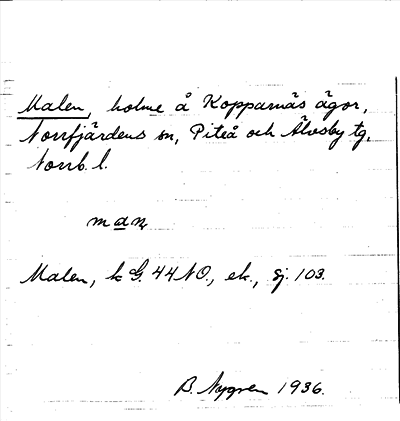 Malen, holme å Kopparnäs ägor,
Norrfjärdens sn, Piteå och Älvsby tg,
Norrb. l.
Malen, k G. 44 NO, ek., sj. 103.
B. Nygren 1936.